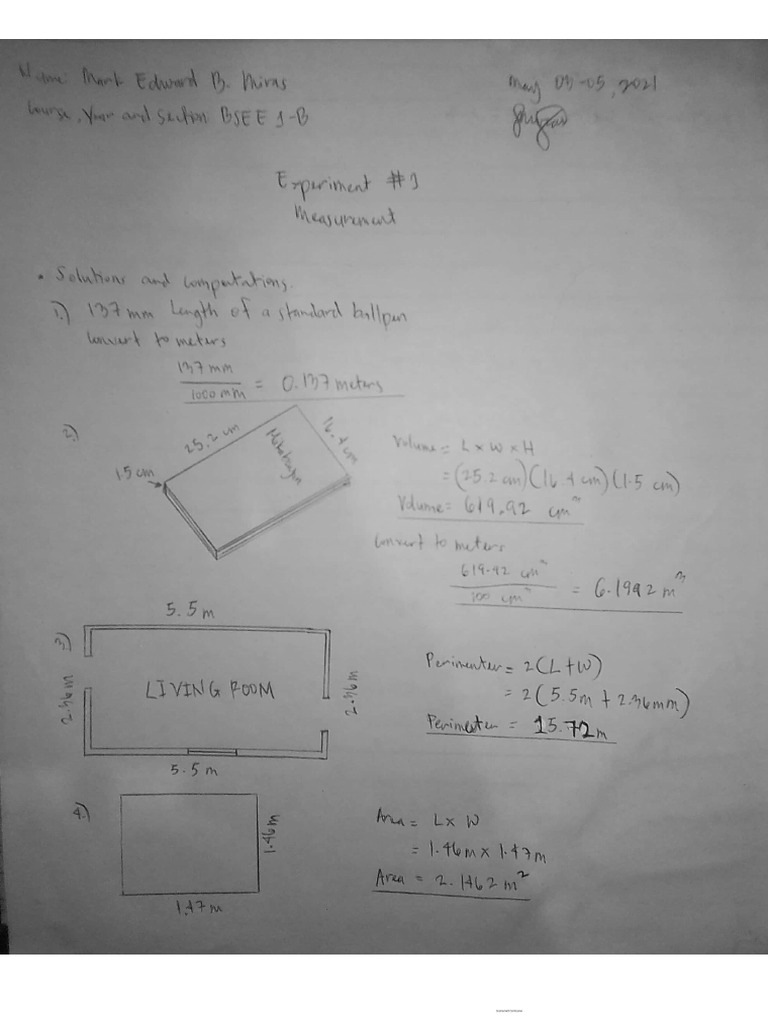 Name: Mark Edward B. Miras
May 03-05, 2021
Course, Year and Section BSEE 1-B
Experiment #1
Measurement
• Solutions and computations.
1.) 137 mm Length of a standard ballpen
Convert to meters
137 mm
1000 mm
= 0.137 meters
2.)
25.2 cm
16.4 cm
1.5 cm
Volume = L x W x H
= (25.2 cm)(16.4 cm)(1.5 cm)
Volume = 619.92 cm³
Convert to meters
619.92 cm³
100 cm³
= 6.1992 m³
3.)
5.5 m
2.36m
LIVING ROOM
2.36m
5.5 m
Perimenter = 2(L+W)
= 2(5.5m + 2.36mm)
Perimeter = 15.72m
4.)
1.46m
1.47m
Area = L x W
= 1.46m x 1.47m
Area = 2.1462 m²